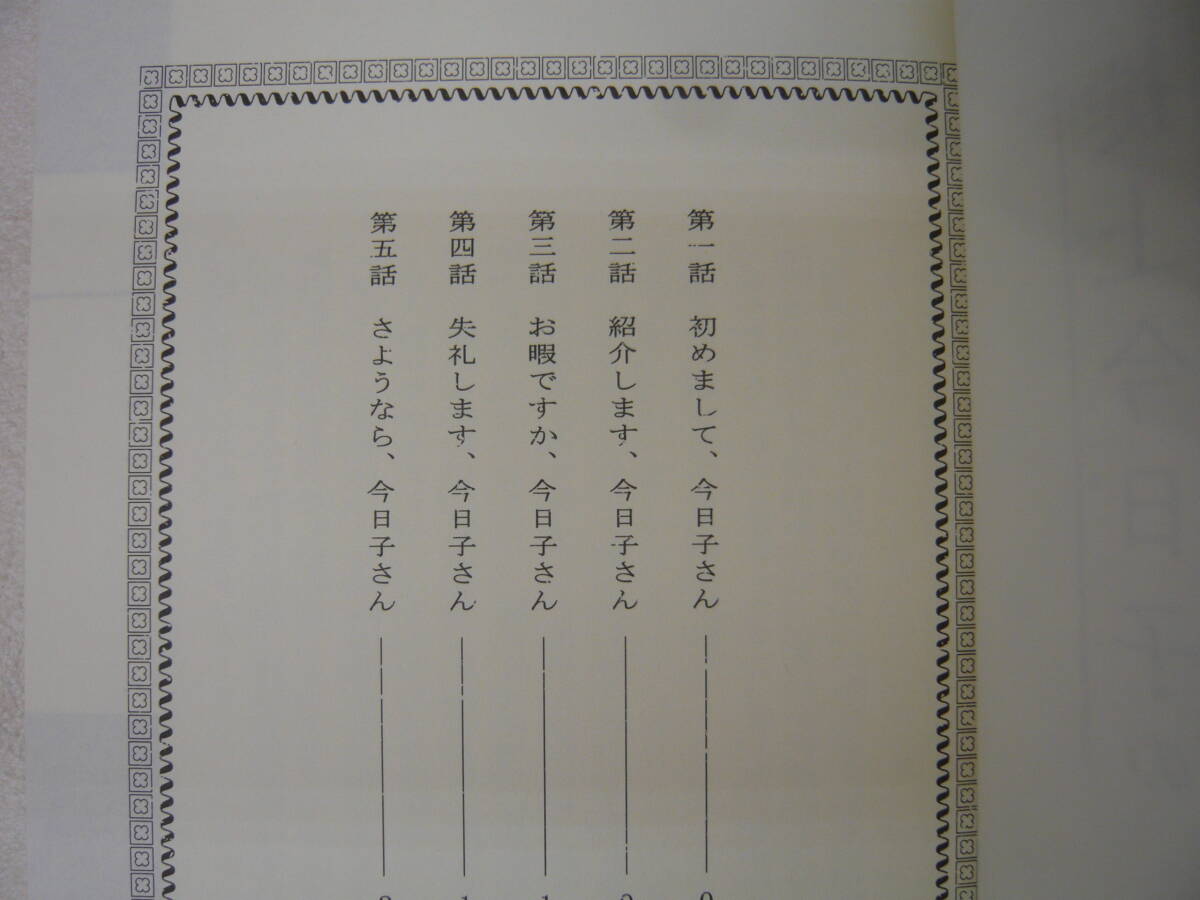 第一話 初めまして、今日子さん
第二話 紹介します、今日子さん
第三話 お暇ですか、今日子さん
第四話 失礼します、今日子さん
第五話 さようなら、今日子さん